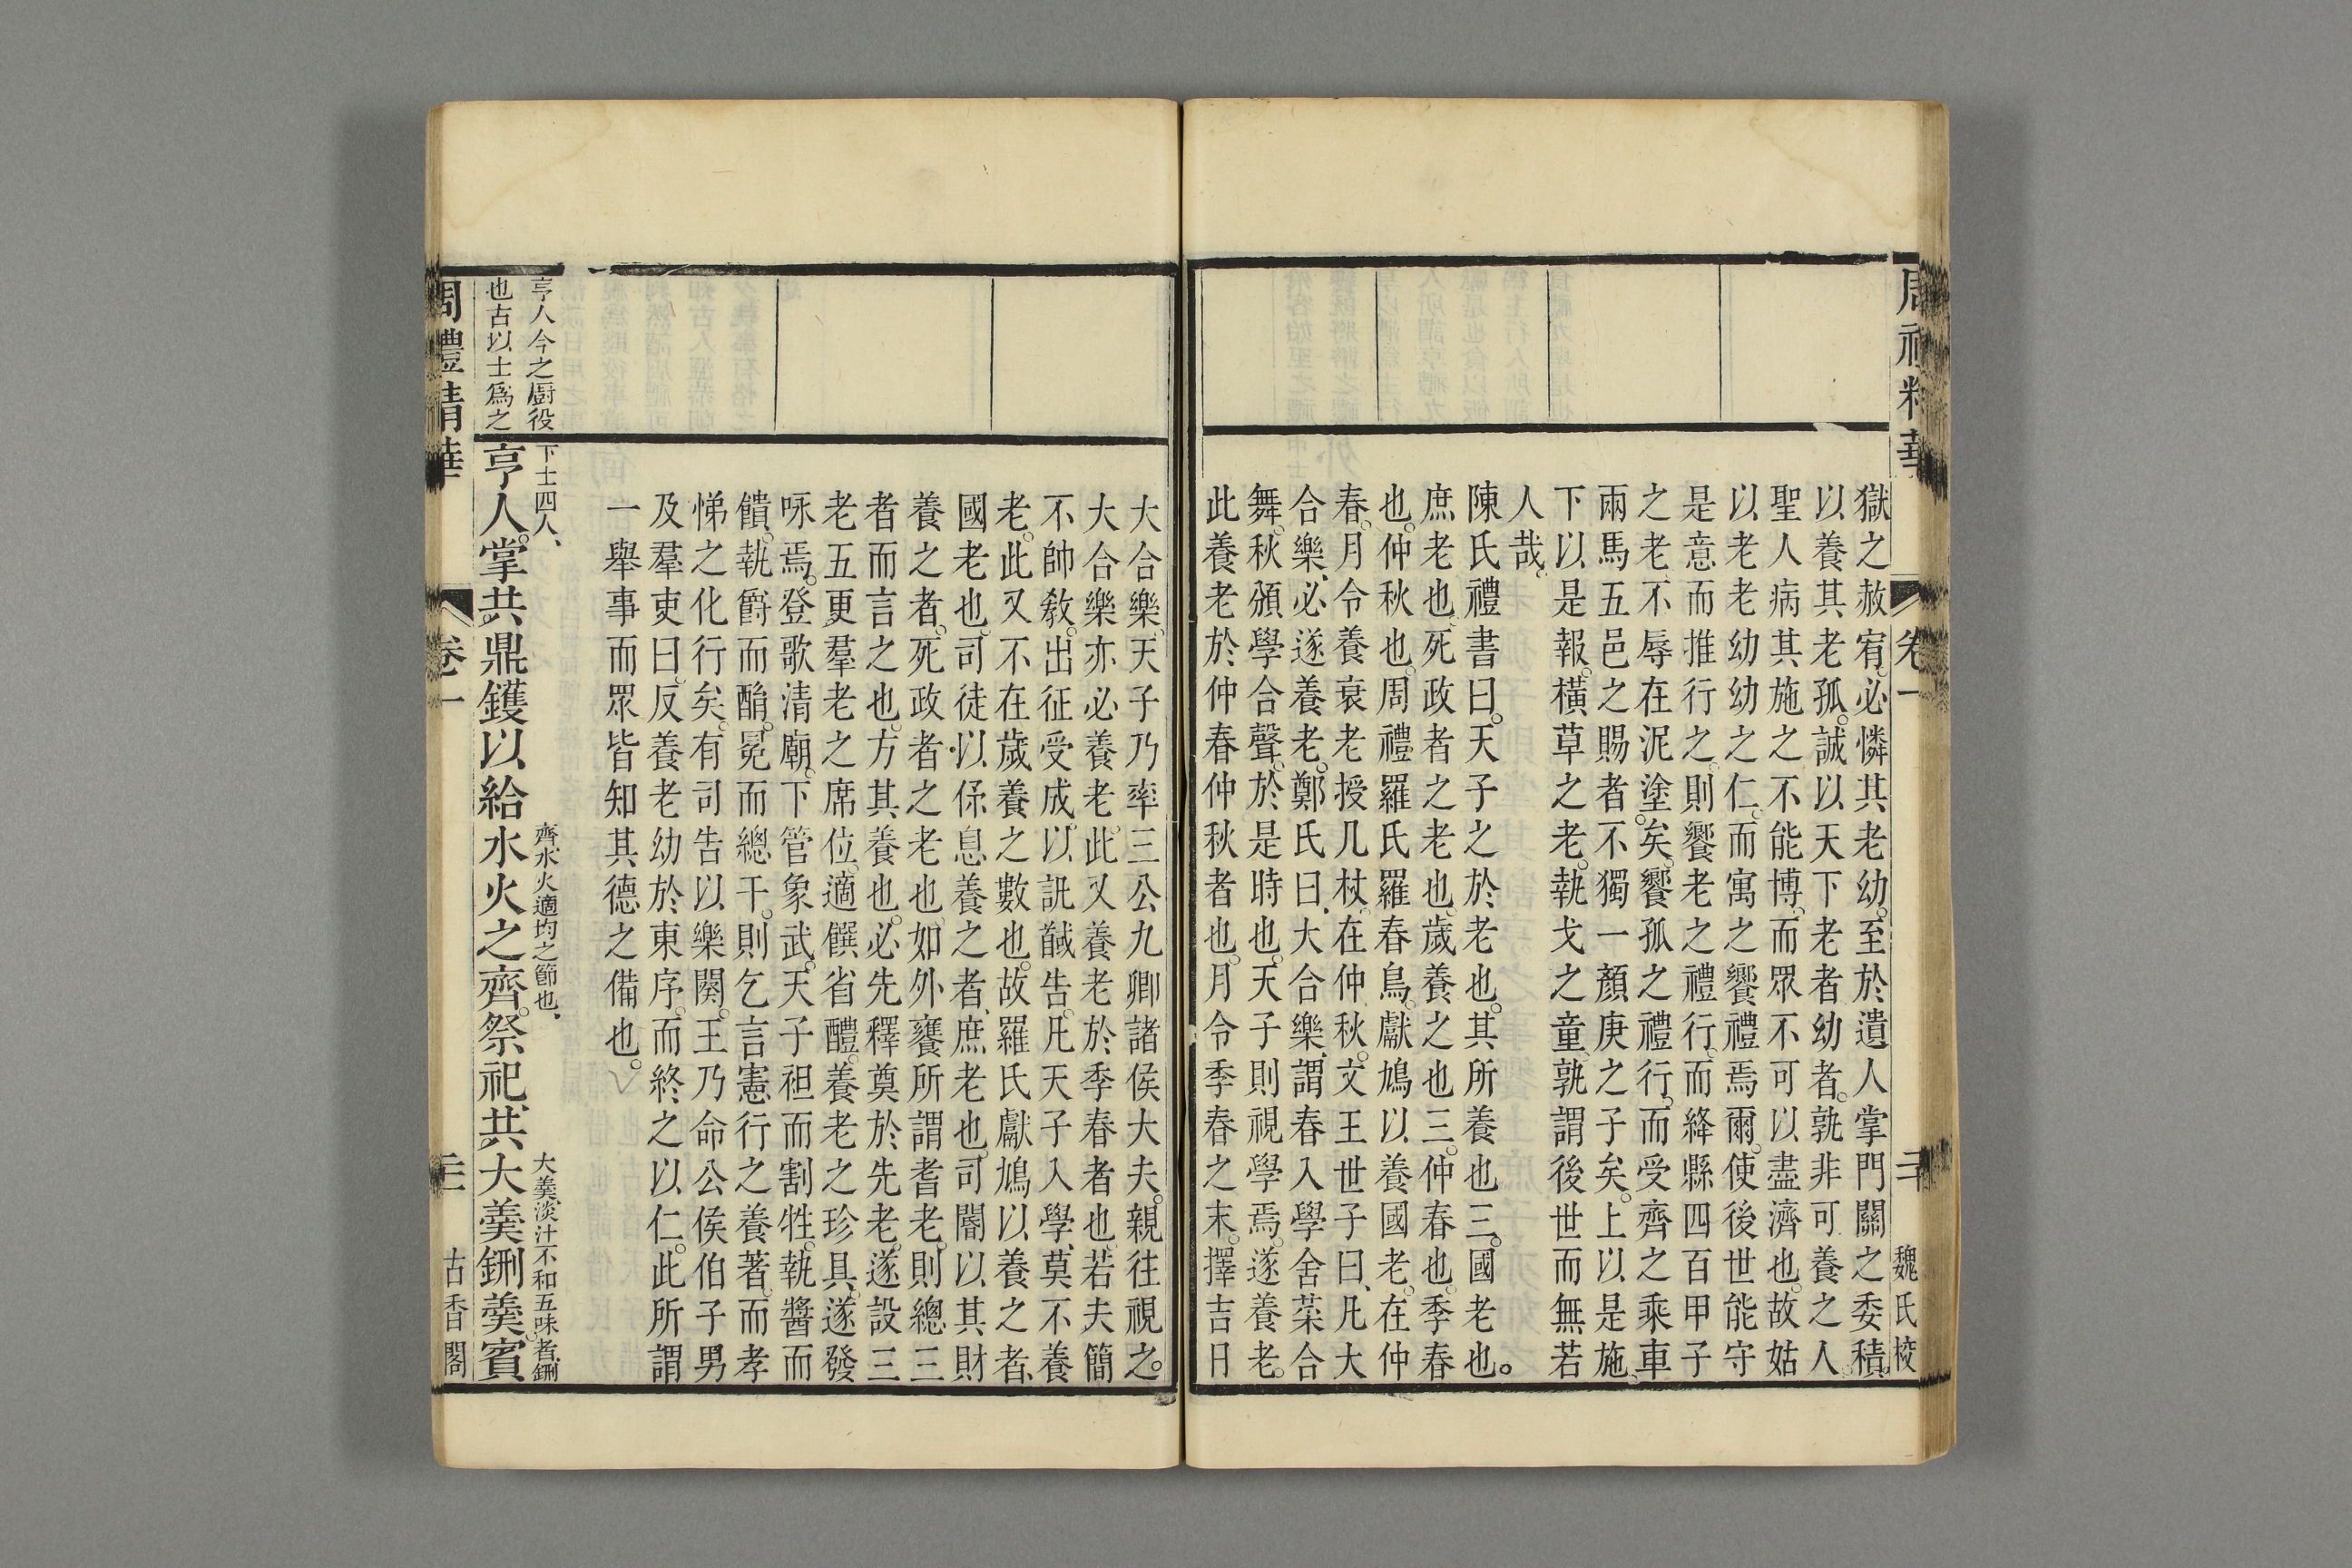 周禮精華
卷一
二十
魏氏校
獄之赦宥。必憐其老幼。至於遺人掌門關之委積。
以養其老孤。誠以天下老者幼者。孰非可養之人。
聖人病其施之不能博。而眾不可以盡濟也。故姑
以老老幼幼之仁。而寓之饗禮焉爾。使後世能守
是意而推行之。則饗老之禮行。而絳縣四百甲子
之老。不辱在泥塗矣。饗孤之禮行。而受齊之乘車
兩馬五邑之賜者。不獨一顏庚之子矣。上以是施。
下以是報。橫草之老。執戈之童。孰謂後世而無若
人哉。
陳氏禮書曰。天子之於老也。其所養也三。國老也。
庶老也。死政者之老也。歲養之也三。仲春也。季春
也。仲秋也。周禮羅氏羅春鳥。獻鳩以養國老。在仲
春。月令養衰老授几杖。在仲秋。文王世子曰、凡大
合樂、必遂養老。鄭氏曰、大合樂、謂春入學舍菜合
舞。秋頒學合聲。於是時也。天子則視學焉。遂養老。
此養老於仲春仲秋者也。月令季春之末。擇吉日
大合樂、天子乃率三公九卿諸侯大夫。親往視之。
大合樂亦必養老。此又養老於季春者也。若夫簡
不帥教。出征受成。以訊馘告。凡天子入學、莫不養
老。此又不在歲養之數也。故羅氏獻鳩以養之者、
國老也。司徒以保息養之者、庶老也。司門以其財
養之者。死政者之老也。如外饔所謂耆老。則總三
者而言之也。方其養也。必先釋奠於先老。遂設三
老五更羣老之席位。適饌省醴。養老之珍具。遂發
咏焉。登歌清廟。下管象武。天子袒而割牲。執醬而
饋。執爵而酳。冕而總干。則乞言憲行之養著。而孝
悌之化行矣。有司告以樂闋。王乃命公侯伯子男
及羣吏曰。反養老幼於東序。而終之以仁。此所謂
一舉事而眾皆知其德之備也。
亨人今之廚役
也古以士為之
亨人。下士四人、掌共鼎鑊以給水火之齊。齊水火適均之節也、祭祀、共大羹鉶羹。大羹淡汁不和五味者鉶賓
周禮精華
卷一
古香閣